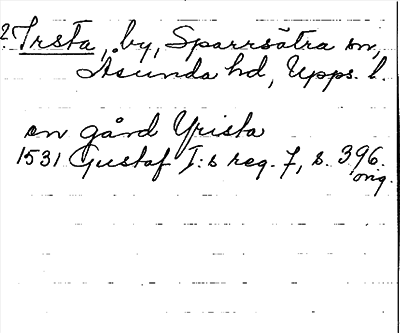 2. Irsta, by, Sparrsätra sn,
Åsunda hd, Upps. l.
en gård Yrista
1531 Gustaf I:s reg. 7, s. 396.
orig.